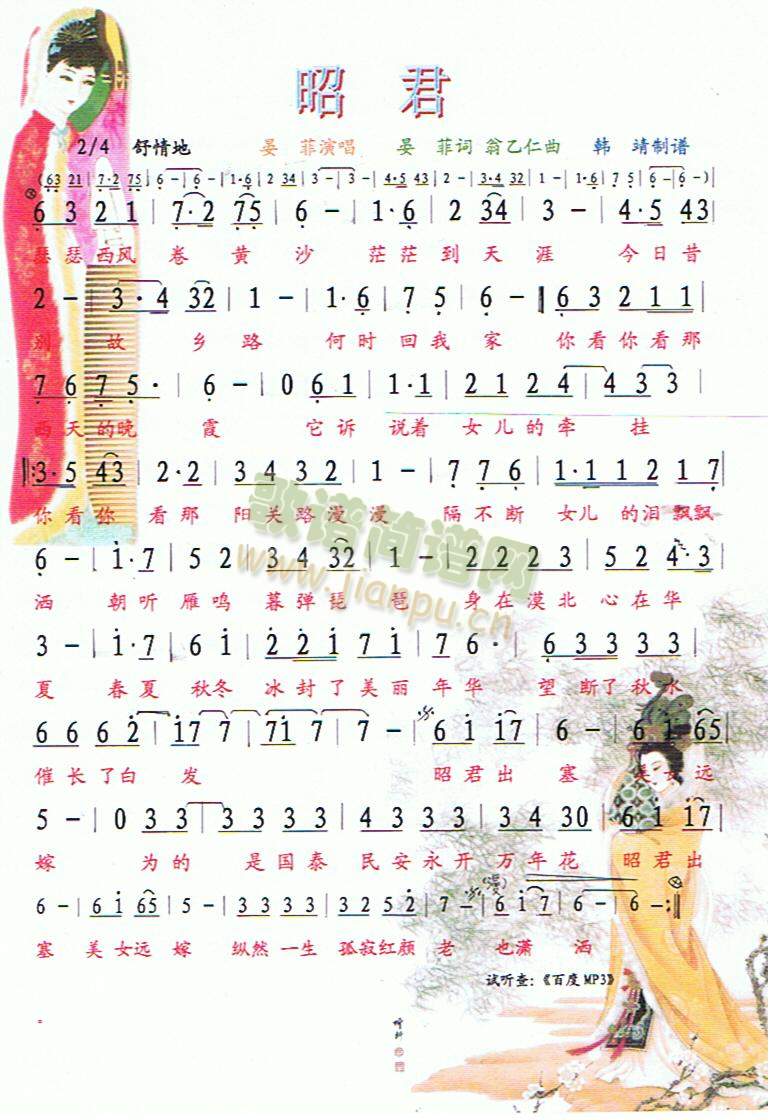 昭 君
2/4 舒情地 晏 菲演唱 晏 菲词 翁乙仁曲 韩 靖制谱
(63 21 | 7·2 75 | 6 - | 6 - | 1·6 | 2 34 | 3 - | 3 - | 4·5 43 | 2 - | 3·4 32 | 1 - | 1·6 | 7 5 | 6 - | 6 - )
6 3 2 1 | 7·2 75 | 6 - | 1·6 | 2 34 | 3 - | 4·5 43 |
瑟瑟西风 卷 黄 沙 茫茫 到 天 涯 今日昔
2 - | 3·4 32 | 1 - | 1·6 | 7 5 | 6 - ‖ 6 3 2 2 1 1 |
别 故 乡 路 何时 回我 家 你看你看那
7 6 7 5· | 6 - | 0 6 1 | 1·1 | 2 1 2 4 | 4 3 3 |
西天的晚 霞 它诉 说着 女儿的牵 挂
‖: 3·5 43 | 2·2 | 3 4 3 2 | 1 - | 7 7 6 | 1·1 1 2 1 7 |
你看你 看那 阳关路漫漫 隔不断 女儿 的泪飘飘
6 - | 1·7 | 5 2 | 3 4 32 | 1 - | 2 2 2 3 | 5 2 4·3 |
洒 朝听 雁鸣 暮弹琵 琶 身在漠北 心在华
3 - | 1·7 | 6 1 | 2 2 1 7 1 | 7 6 | 6 3 3 3 3 |
夏 春夏 秋冬 冰封了美丽 年华 望 断了秋水
6 6 6 2 | 17 7 | 71 7 | 7 - | 6 1 17 | 6 - | 6 1 65 |
催长了白 发 昭君出 塞 美女远
5 - | 0 3 3 | 3 3 3 3 | 4 3 3 3 | 3 4 30 | 6 1 17 |
嫁 为的 是国泰 民安永开 万年花 昭君出
6 - | 6 1 65 | 5 - | 3 3 3 3 | 3 2 5 2 | 7 - | 6 1 7 | 6 - | 6 - :‖
(漫)
塞 美女远 嫁 纵然一生 孤寂红颜 老 也潇 洒
试听查:《百度MP3》
歌谱简谱网
www.jianpu.cn